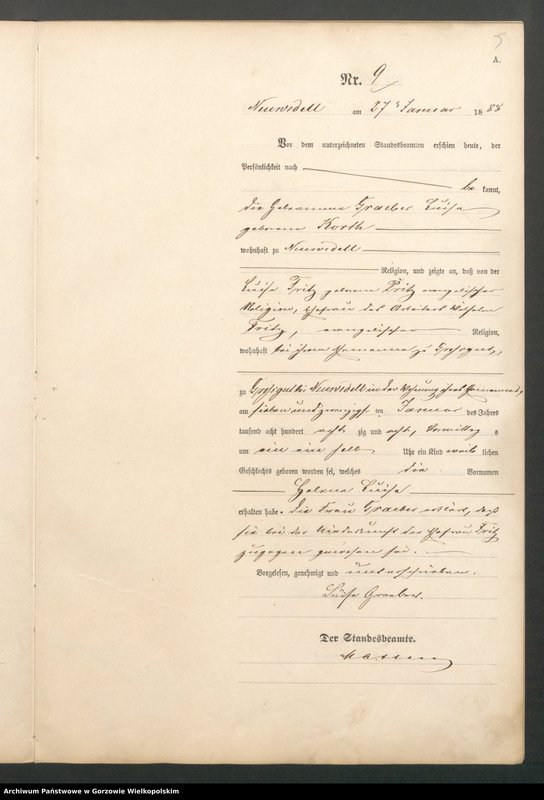 5
A.
Nr. 9
Neuwedell am 27ten Januar 1888
Von dem unterzeichneten Standesbeamten erschien heute, der
Persönlichkeit nach
be kannt,
die Hebamme Graeber Luise
geborene Korth
wohnhaft zu Neuwedell
Religion, und zeigte an, daß von der
Luise Fritz geborene evangelischer
Religion, Ehefrau des Arbeiters Wilhelm
Fritz, evangelischer Religion,
wohnhaft bei ihrem Ehemanne zu
zu bei Neuwedell in der Wohnung ihres Ehemannes,
am sieben und zwanzigsten Januar des Jahres
tausend acht hundert acht zig und acht, Vormittag s
um ein ein halb Uhr ein Kind weib lichen
Geschlechts geboren worden sei, welches die Vornamen
Helene Luise
erhalten habe. Die Frau Graeber erklärt, daß
sie bei der Niederkunft der Ehefrau Fritz
zugegen gewesen sei.
Vorgelesen, genehmigt und unterschrieben.
Luise Graeber.
Der Standesbeamte.
Archiwum Państwowe w Gorzowie Wielkopolskim